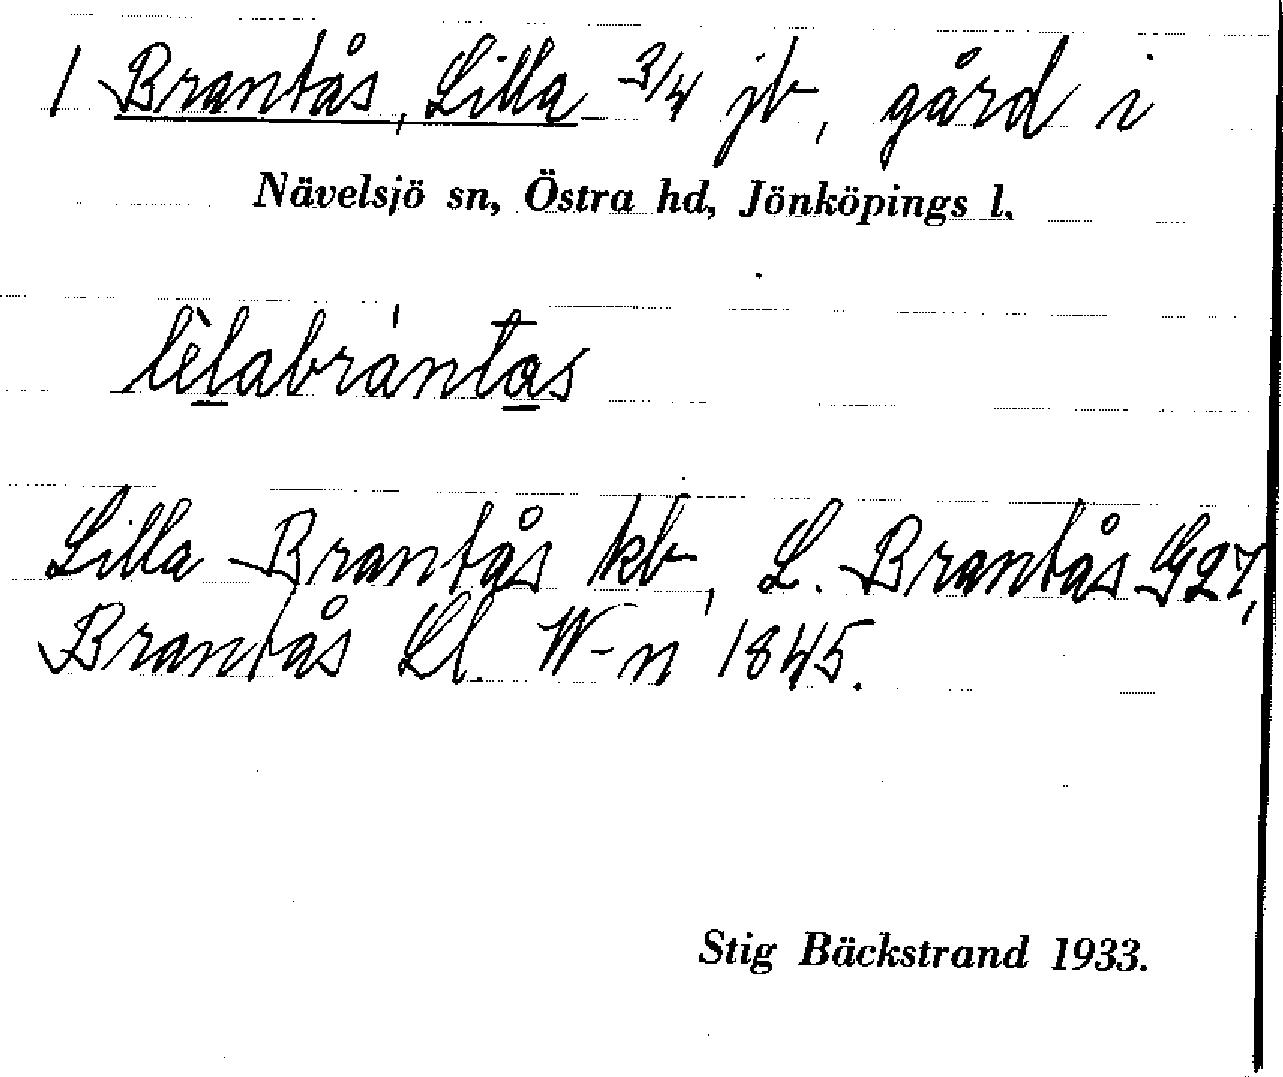 1 Brantås, Lilla 3/4 jb, gård i
Nävelsjö sn, Östra hd, Jönköpings l.
lèlabrántas
Lilla Brantås kb, L. Brantås G27,
Brantås Ll. W-n 1845.
Stig Bäckstrand 1933.